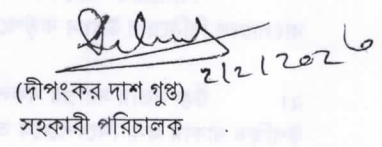 2/2/2026
(দীপংকর দাশ গুপ্ত)
সহকারী পরিচালক